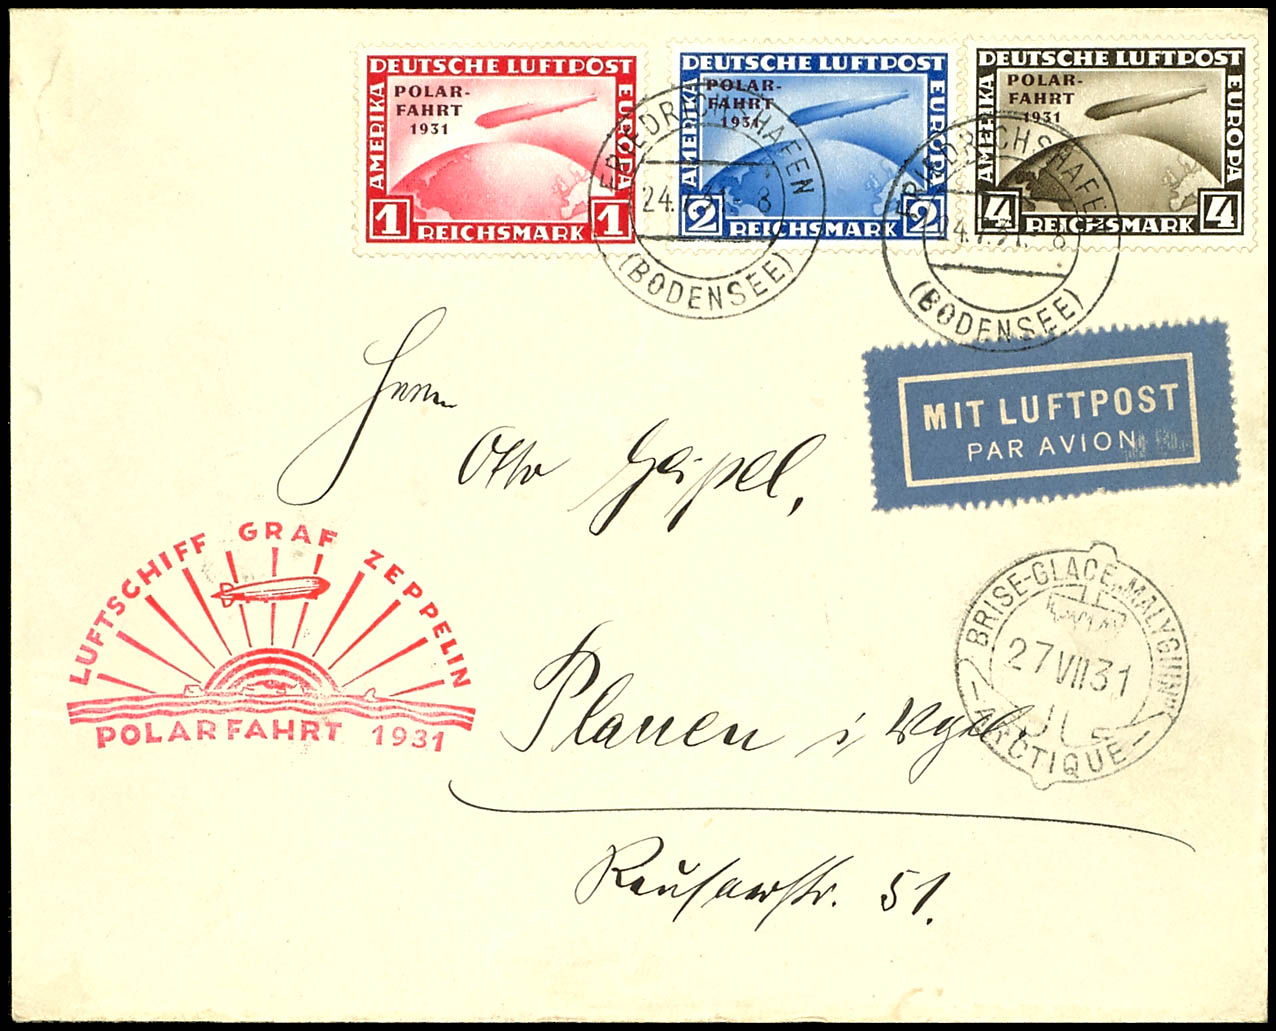 DEUTSCHE LUFTPOST
AMERIKA
EUROPA
POLAR-
FAHRT
1931
1 1
REICHSMARK
DEUTSCHE LUFTPOST
AMERIKA
EUROPA
POLAR-
FAHRT
1931
2 2
REICHSMARK
DEUTSCHE LUFTPOST
AMERIKA
EUROPA
POLAR-
FAHRT
1931
4 4
REICHSMARK
FRIEDRICHSHAFEN
24.7.31. 8
(BODENSEE)
FRIEDRICHSHAFEN
24.7.31. 8
(BODENSEE)
MIT LUFTPOST
PAR AVION
Herrn
Otto Geipel,
LUFTSCHIFF GRAF ZEPPELIN
POLARFAHRT 1931
BRISE-GLACE „MALYGUIN"
27 VII 31
ARCTIQUE
Plauen i. Vgtl.
Reusaerstr. 51.